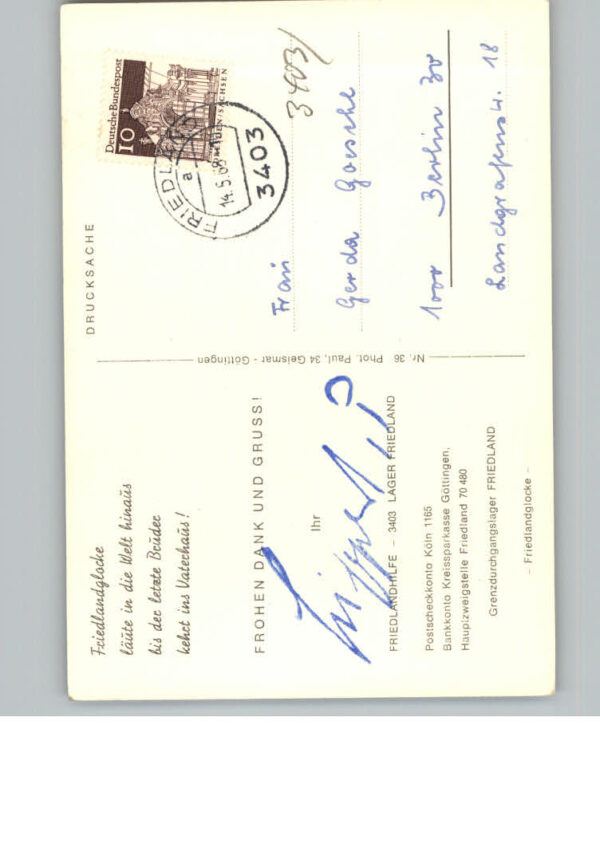 Friedlandglocke
läute in die Welt hinaus
bis der letzte Bruder
kehrt ins Vaterhaus!
FROHEN DANK UND GRUSS!
Ihr
FRIEDLANDHILFE – 3403 LAGER FRIEDLAND
Postscheckkonto Köln 1165
Bankkonto Kreissparkasse Göttingen,
Hauptzweigstelle Friedland 70 480
Grenzdurchgangslager FRIEDLAND
– Friedlandglocke –
Nr. 36 Phot. Paul, 34 Geismar - Göttingen
DRUCKSACHE
Deutsche Bundespost
10
SACHSEN
FRIEDLAND
a
14.5.68
3403
3403/
Frau
Gerda Goesche
1000 Berlin 30
Landgrafenstr. 18